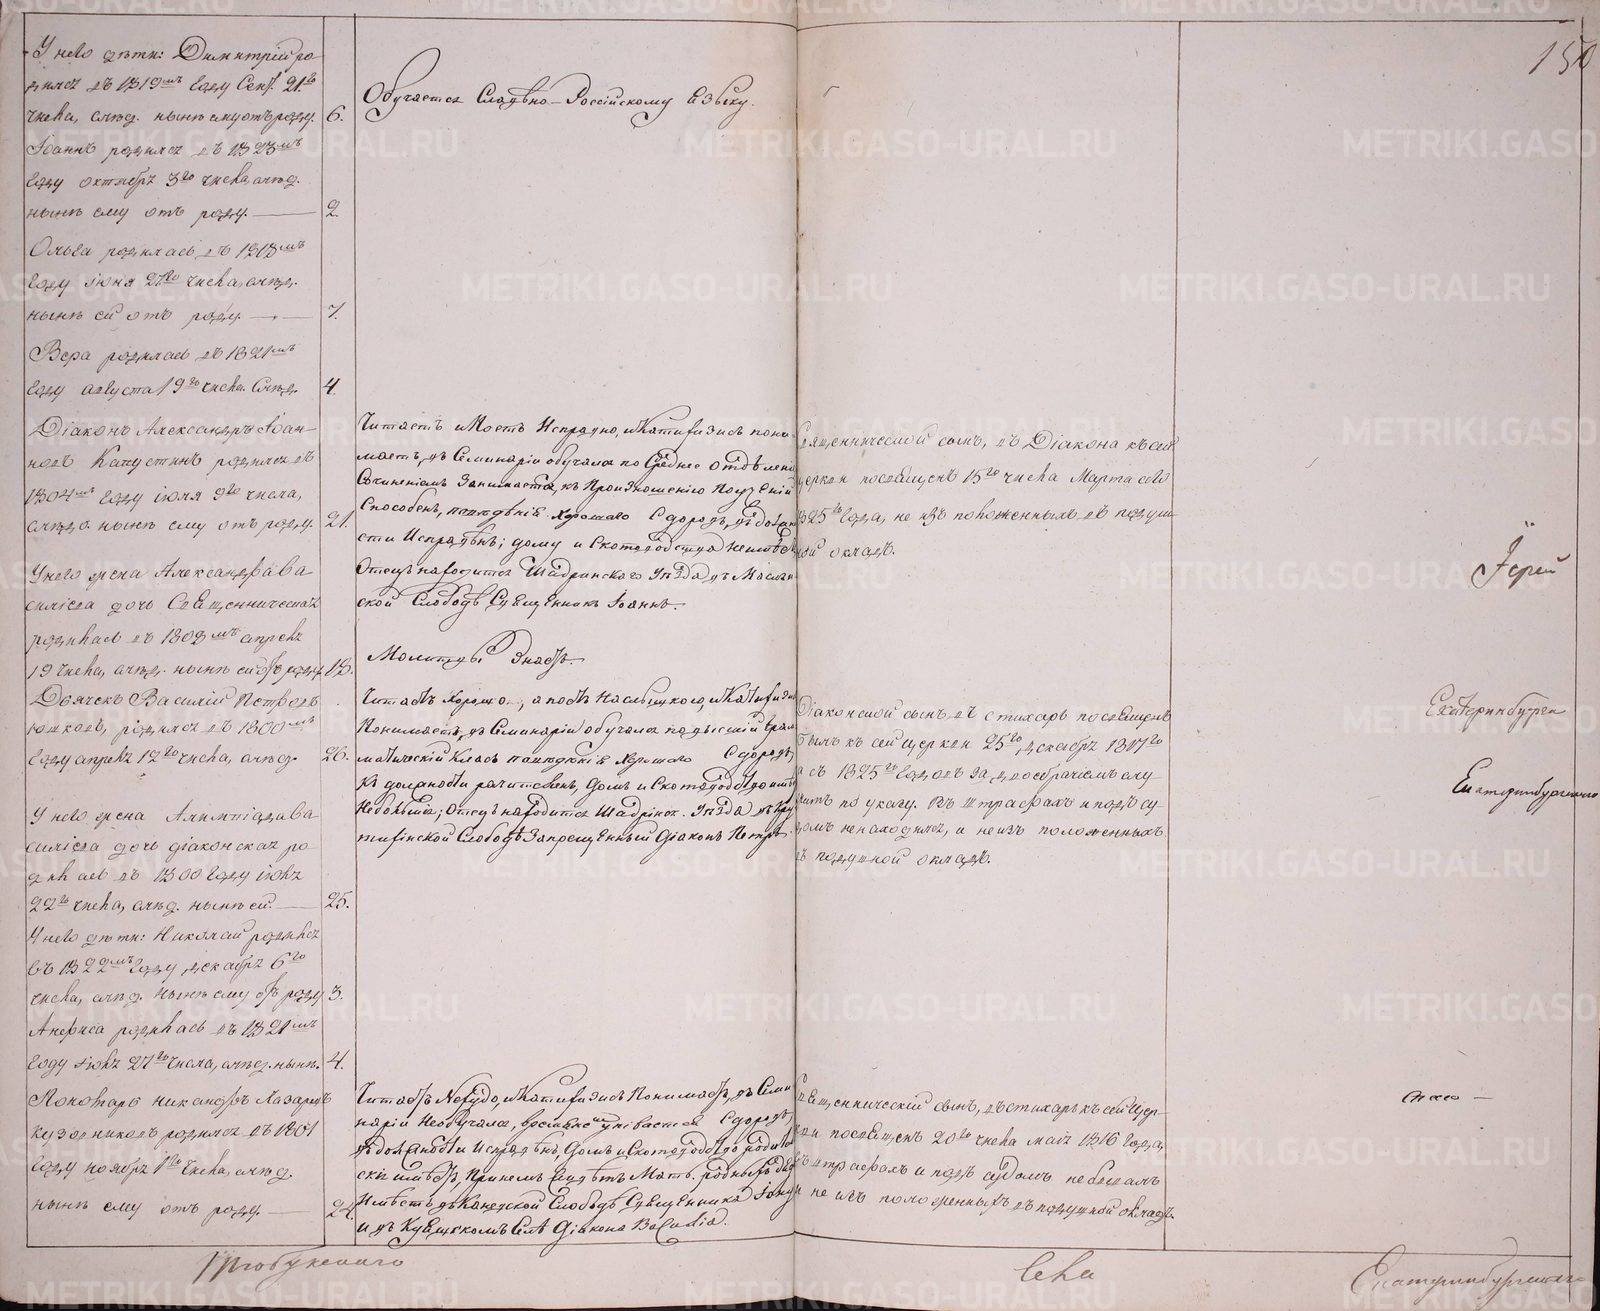 150
У него дѣти: Димитрій ро-
дился въ 1819мъ году Сент. 21го
числа, слѣд. нынѣ ему отъ роду. 6.
Обучается Славяно-Россійскому языку.
Іоаннъ родился въ 1823мъ
году октября 3го числа, слѣд.
нынѣ ему отъ роду. 2.
Ольга родилась въ 1818мъ
году іюня 27го числа, слѣд.
нынѣ ей отъ роду. 7.
Вера родилась въ 1821мъ
году августа 19го числа. Слѣд. 4.
Діаконъ Александръ Іоан-
новъ Капустинъ родился въ
1804мъ году іюля 9го числа,
слѣдо. нынѣ ему отъ роду. 21.
Читаетъ и Поетъ Исправно, и Катихизисъ пони-
маетъ, въ Семинаріи обучался по Среднее отдѣленіе
Сочиненіемъ Занимается, къ Произношенію Поученій
Способенъ, поведѣнія хорошаго Здоровъ, въ должно-
сти Исправенъ; дому и Скотоводства неимѣетъ
Отецъ находится Шадринскаго Уѣзда, въ Маслян-
ской Слободѣ Священникъ Іоаннъ.
Священнической сынъ, въ Діакона къ сей
церкви посвященъ 15го числа Марта сего
1825го года, не изъ положенныхъ въ подуш-
ной окладъ.
Іерей
У него жена Александра Ва
силіева дочь Священническая
родилась въ 1808мъ апреля
19 числа, слѣд. нынѣ ей отъ роду 18.
Молитвы Знаетъ.
Дьячекъ Василій Петровъ
родился въ 1800мъ
году апреля 12го числа, слѣд. 26.
Читаетъ Хорошо, а поетъ
Понимаетъ, въ Семинаріи обучался по высшій Грам-
матическій Класъ поведенія Хорошаго Здоровъ,
Къ должности рачителенъ, Домъ и Скотоводство имѣетъ
Небольшее; Отецъ находится Шадринск. Уѣзда въ Кру-
тихинской Слободѣ Запрещенный Діаконъ Петръ.
Діаконской сынъ, въ стихарь посвященъ
былъ къ сей церкви 25го декабря 1817го
а съ 1825го года за двоебрачіемъ слу-
житъ по указу. Въ штрафахъ и подъ су-
домъ не находился, и не изъ положенныхъ
въ подушной окладъ.
Екатеринбурга
Екатеринбургскаго
У него жена Ва
силіева дочь діаконская ро-
дилась въ 1800 году іюля
22го числа, слѣд. нынѣ ей. 25.
У него дѣти: Николай родился
въ 1822мъ году декабря 6го
числа, слѣд. нынѣ ему отъ роду 3.
Анфиса родилась въ 1821мъ
году 27го числа, слѣд. нынѣ. 4.
Пономарь Никаноръ Лазаревъ
родился въ 1801
году ноября 1го числа, слѣд.
нынѣ ему отъ роду. 24.
Читаетъ Нехудо, и Катихизисъ Понимаетъ, въ Семи-
наріи Необучался, Здоровъ,
въ должности Исправенъ, Домъ и Скотоводство родитель-
скій имѣетъ, Мать. родныхъ
Имѣетъ въ Слободѣ Священника
и въ Селѣ Діакона
Священническій сынъ, въ стихарь къ сей цер-
кви посвященъ 20го числа маія 1816 года,
въ штрафахъ и подъ судомъ не бывалъ
и не изъ положенныхъ въ подушной окладъ.
Села
Екатеринбургскаго
METRIKI.GASO-URAL.RU